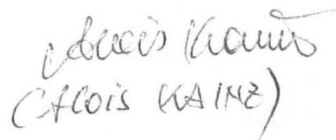 Alois Kainz
(Alois KAINZ)